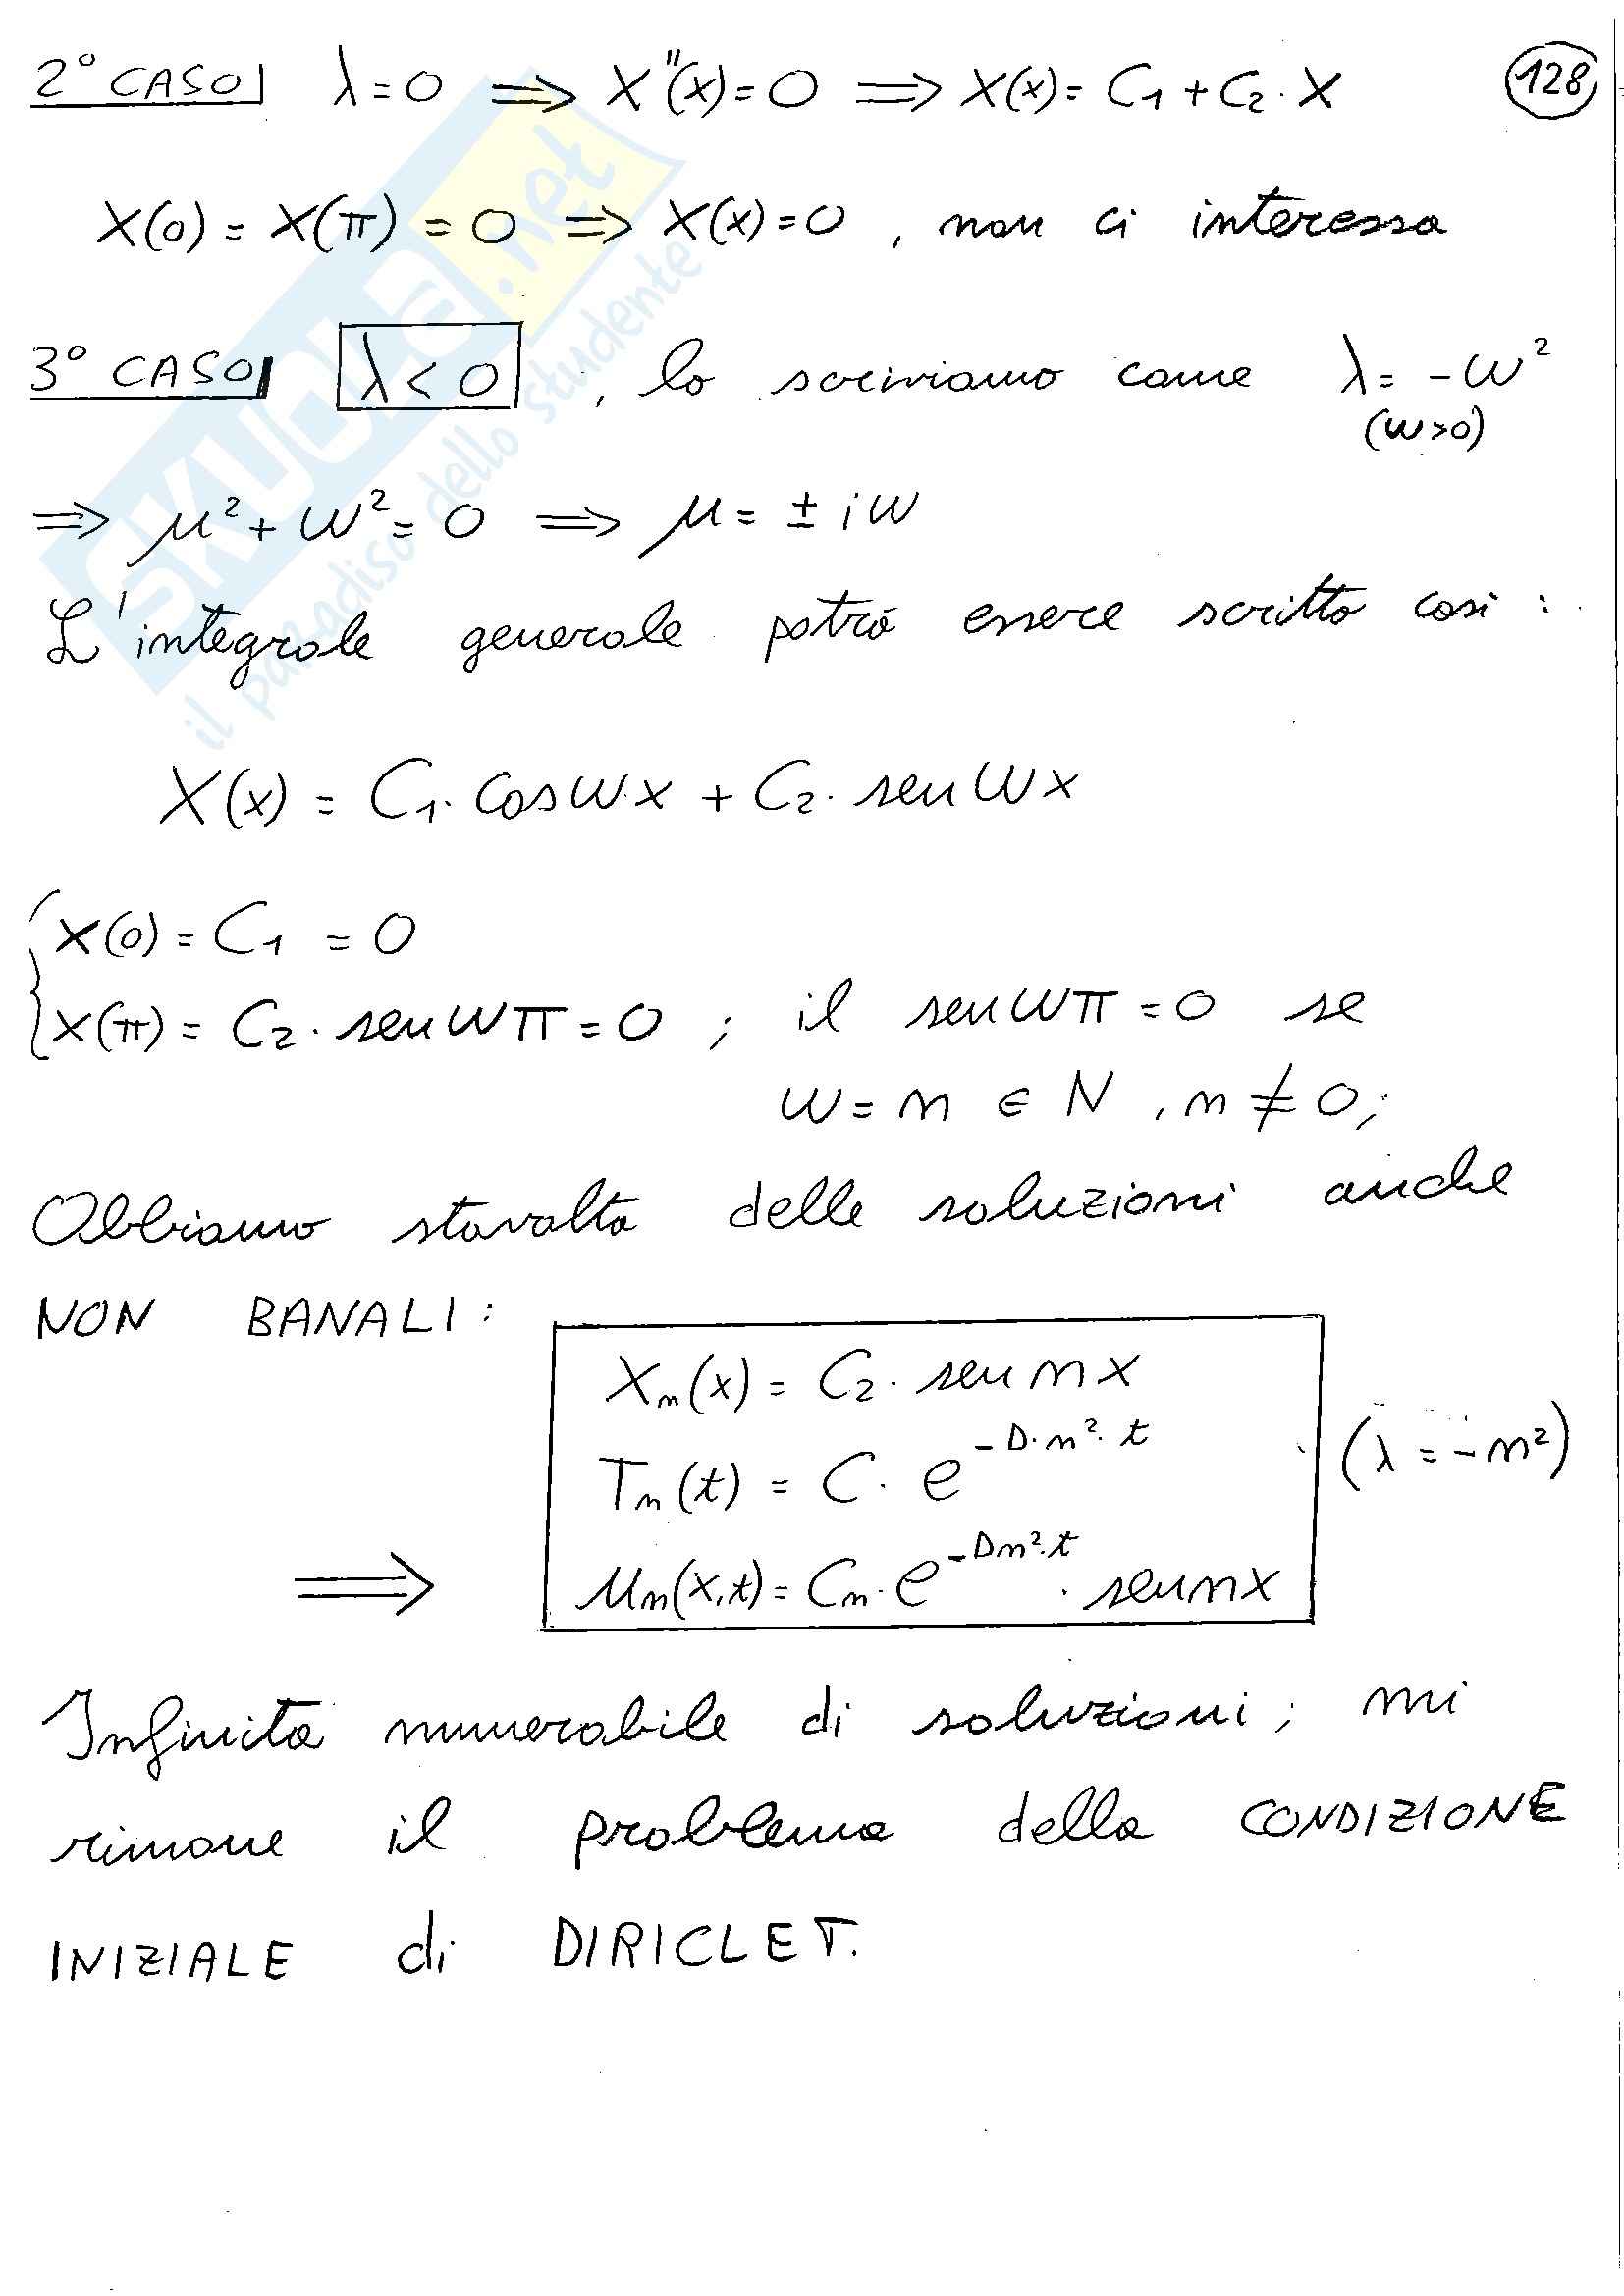 2° CASO λ = 0 ⟹ X''(x) = 0 ⟹ X(x) = C₁ + C₂ · X
128
X(0) = X(π) = 0 ⟹ X(x) = 0 , non ci interessa
3° CASO λ < 0 , lo scriviamo come λ = -ω²
(ω>0)
⟹ μ² + ω² = 0 ⟹ μ = ± iω
L'integrale generale potrà essere scritto così :
X(x) = C₁ · cos ωx + C₂ · sen ωx
X(0) = C₁ = 0
X(π) = C₂ · sen ωπ = 0 ; il sen ωπ = 0 se
ω = n ∈ N , n ≠ 0 ;
Abbiamo stavolta delle soluzioni anche
NON BANALI :
Xₙ(x) = C₂ · sen nx
Tₙ(t) = C · e^{-D·n²·t} (λ = -n²)
⟹ uₙ(x,t) = Cₙ · e^{-Dn²·t} · sen nx
Infinità numerabile di soluzioni ; mi
rimane il problema della CONDIZIONE
INIZIALE di DIRICLET.
SKUOLA.net
il paradiso dello studente